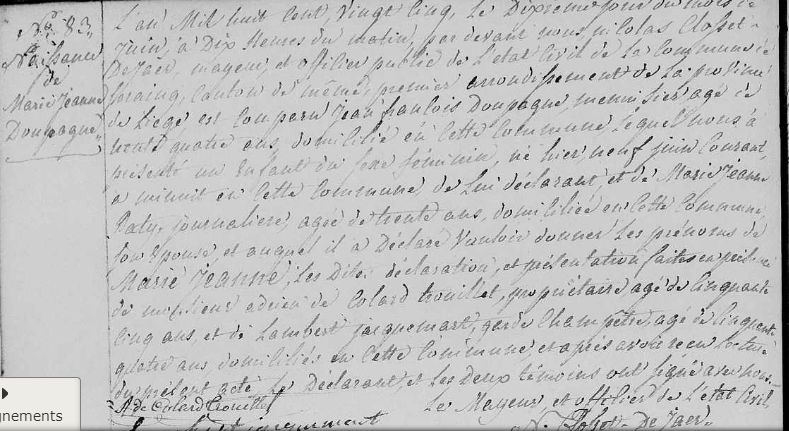 N.º 83,
Naissance
de
Marie Jeanne
Doupagne
L'an Mil huit Cent, Vingt Cinq, le Dixieme jour du mois de
Juin, à Dix Heures du matin, par devant nous nicolas Closset-
DeJaer, mayeur, et officier public de l'etat Civil de la Commune de
Canton de même, premier arrondissement de La province
de Liége est Comparu Jean francois Doupagne, menuisier, agé de
trente quatre ans, domicilié en Cette Commune, Lequel nous à
présenté un Enfant du sexe féminin, né hier neuf juin Courant,
a minuit en Cette Commune de Lui déclarant, et de Marie Jeanne
Paty, journaliere, agée de trente ans, domiciliée en Cette Commune
son Epouse, et auquel il a Déclaré Vouloir donner Les prénoms de
Marie Jeanne, Les Dites déclaration, et présentation faites en présence
de messieurs de Colard trouillet, propriétaire agé de Cinquante
Cinq ans, et de Lambert jacquemart, garde Champêtre, agé de Cinquante
quatre ans, domiciliés en Cette Commune, et après avoir en Lecture
du présent acte, Le Déclarant, et Les Deux témoins ont signé avec nous
A. de Colard trouillet
Le Mayeur, et officier de L'état Civil
jacquemart
N. Closset-De Jaer
gnements